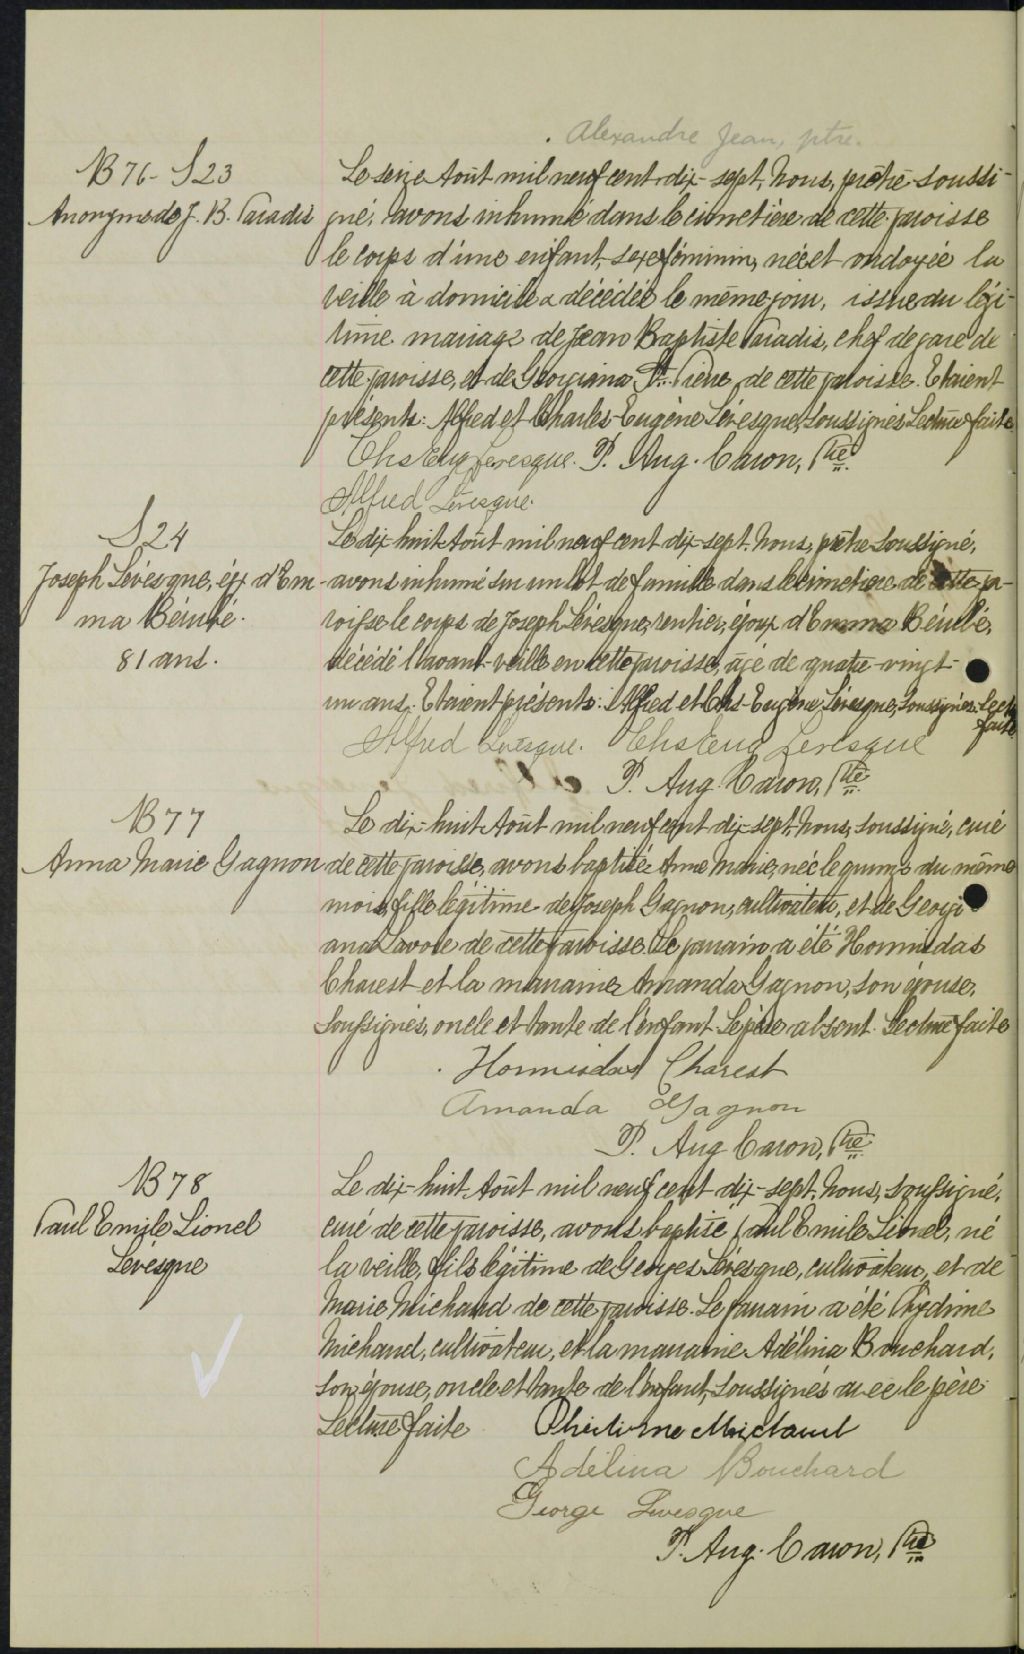 Alexandre Jean, ptre.
B 76 - S 23
Anonyme de J. B. Paradis
Le seize Août mil neuf cent dix-sept, Nous, prêtre soussi-
gné, avons inhumé dans le cimetière de cette paroisse
le corps d'une enfant, sexe féminin, née et ondoyée la
veille à domicile & décédée le même jour, issue du légi-
time mariage de Jean Baptiste Paradis, chef de gare de
cette paroisse, et de Georgiana St. Pierre, de cette paroisse. Etaient
présents: Alfred et Charles-Eugène Lévesque, soussignés Lecture faite.
Chs Eug Levesque. P. Aug. Caron, Ptre
Alfred Lévesque.
S 24
Joseph Lévesque, épx d'Em-
ma Bérubé.
81 ans.
Le dix-huit Août mil neuf cent dix-sept, Nous, prêtre soussigné,
avons inhumé sur un lot de famille dans le cimetière de cette pa-
roisse le corps de Joseph Lévesque, rentier, époux d'Emma Bérubé,
décédé l'avant-veille en cette paroisse, âgé de quatre-vingt-
un ans. Etaient présents: Alfred et Chs-Eugène Lévesque, soussignés. Lect.
faite
Alfred Levesque. Chs Eug Levesque
P. Aug. Caron, Ptre
B 77
Anna Marie Gagnon
Le dix-huit Août mil neuf cent dix-sept, Nous, soussigné, curé
de cette paroisse, avons baptisé Anna Marie, née le quinze du même
mois, fille légitime de Joseph Gagnon, cultivateur, et de Georgi
ana Lavoie de cette paroisse. Le parrain a été Hormidas
Charest et la marraine Amanda Gagnon, son épouse,
soussignés, oncle et tante de l'enfant. Le père absent. Lecture faite
Hormisdas Charest
Amanda Gagnon
P. Aug Caron, Ptre
B 78
Paul Emile Lionel
Lévesque
Le dix-huit Août mil neuf cent dix-sept, Nous, soussigné,
curé de cette paroisse, avons baptisé Paul Emile Lionel, né
la veille, fils légitime de Georges Lévesque, cultivateur, et de
Marie Michaud de cette paroisse. Le parrain a été Phydime
Michaud, cultivateur, et la marraine Adélina Bouchard,
son épouse, oncle et tante de l'enfant, soussignés avec le père
Lecture faite
Phidime Michaud
Adélina Bouchard
George Levesque
P. Aug. Caron, Ptre